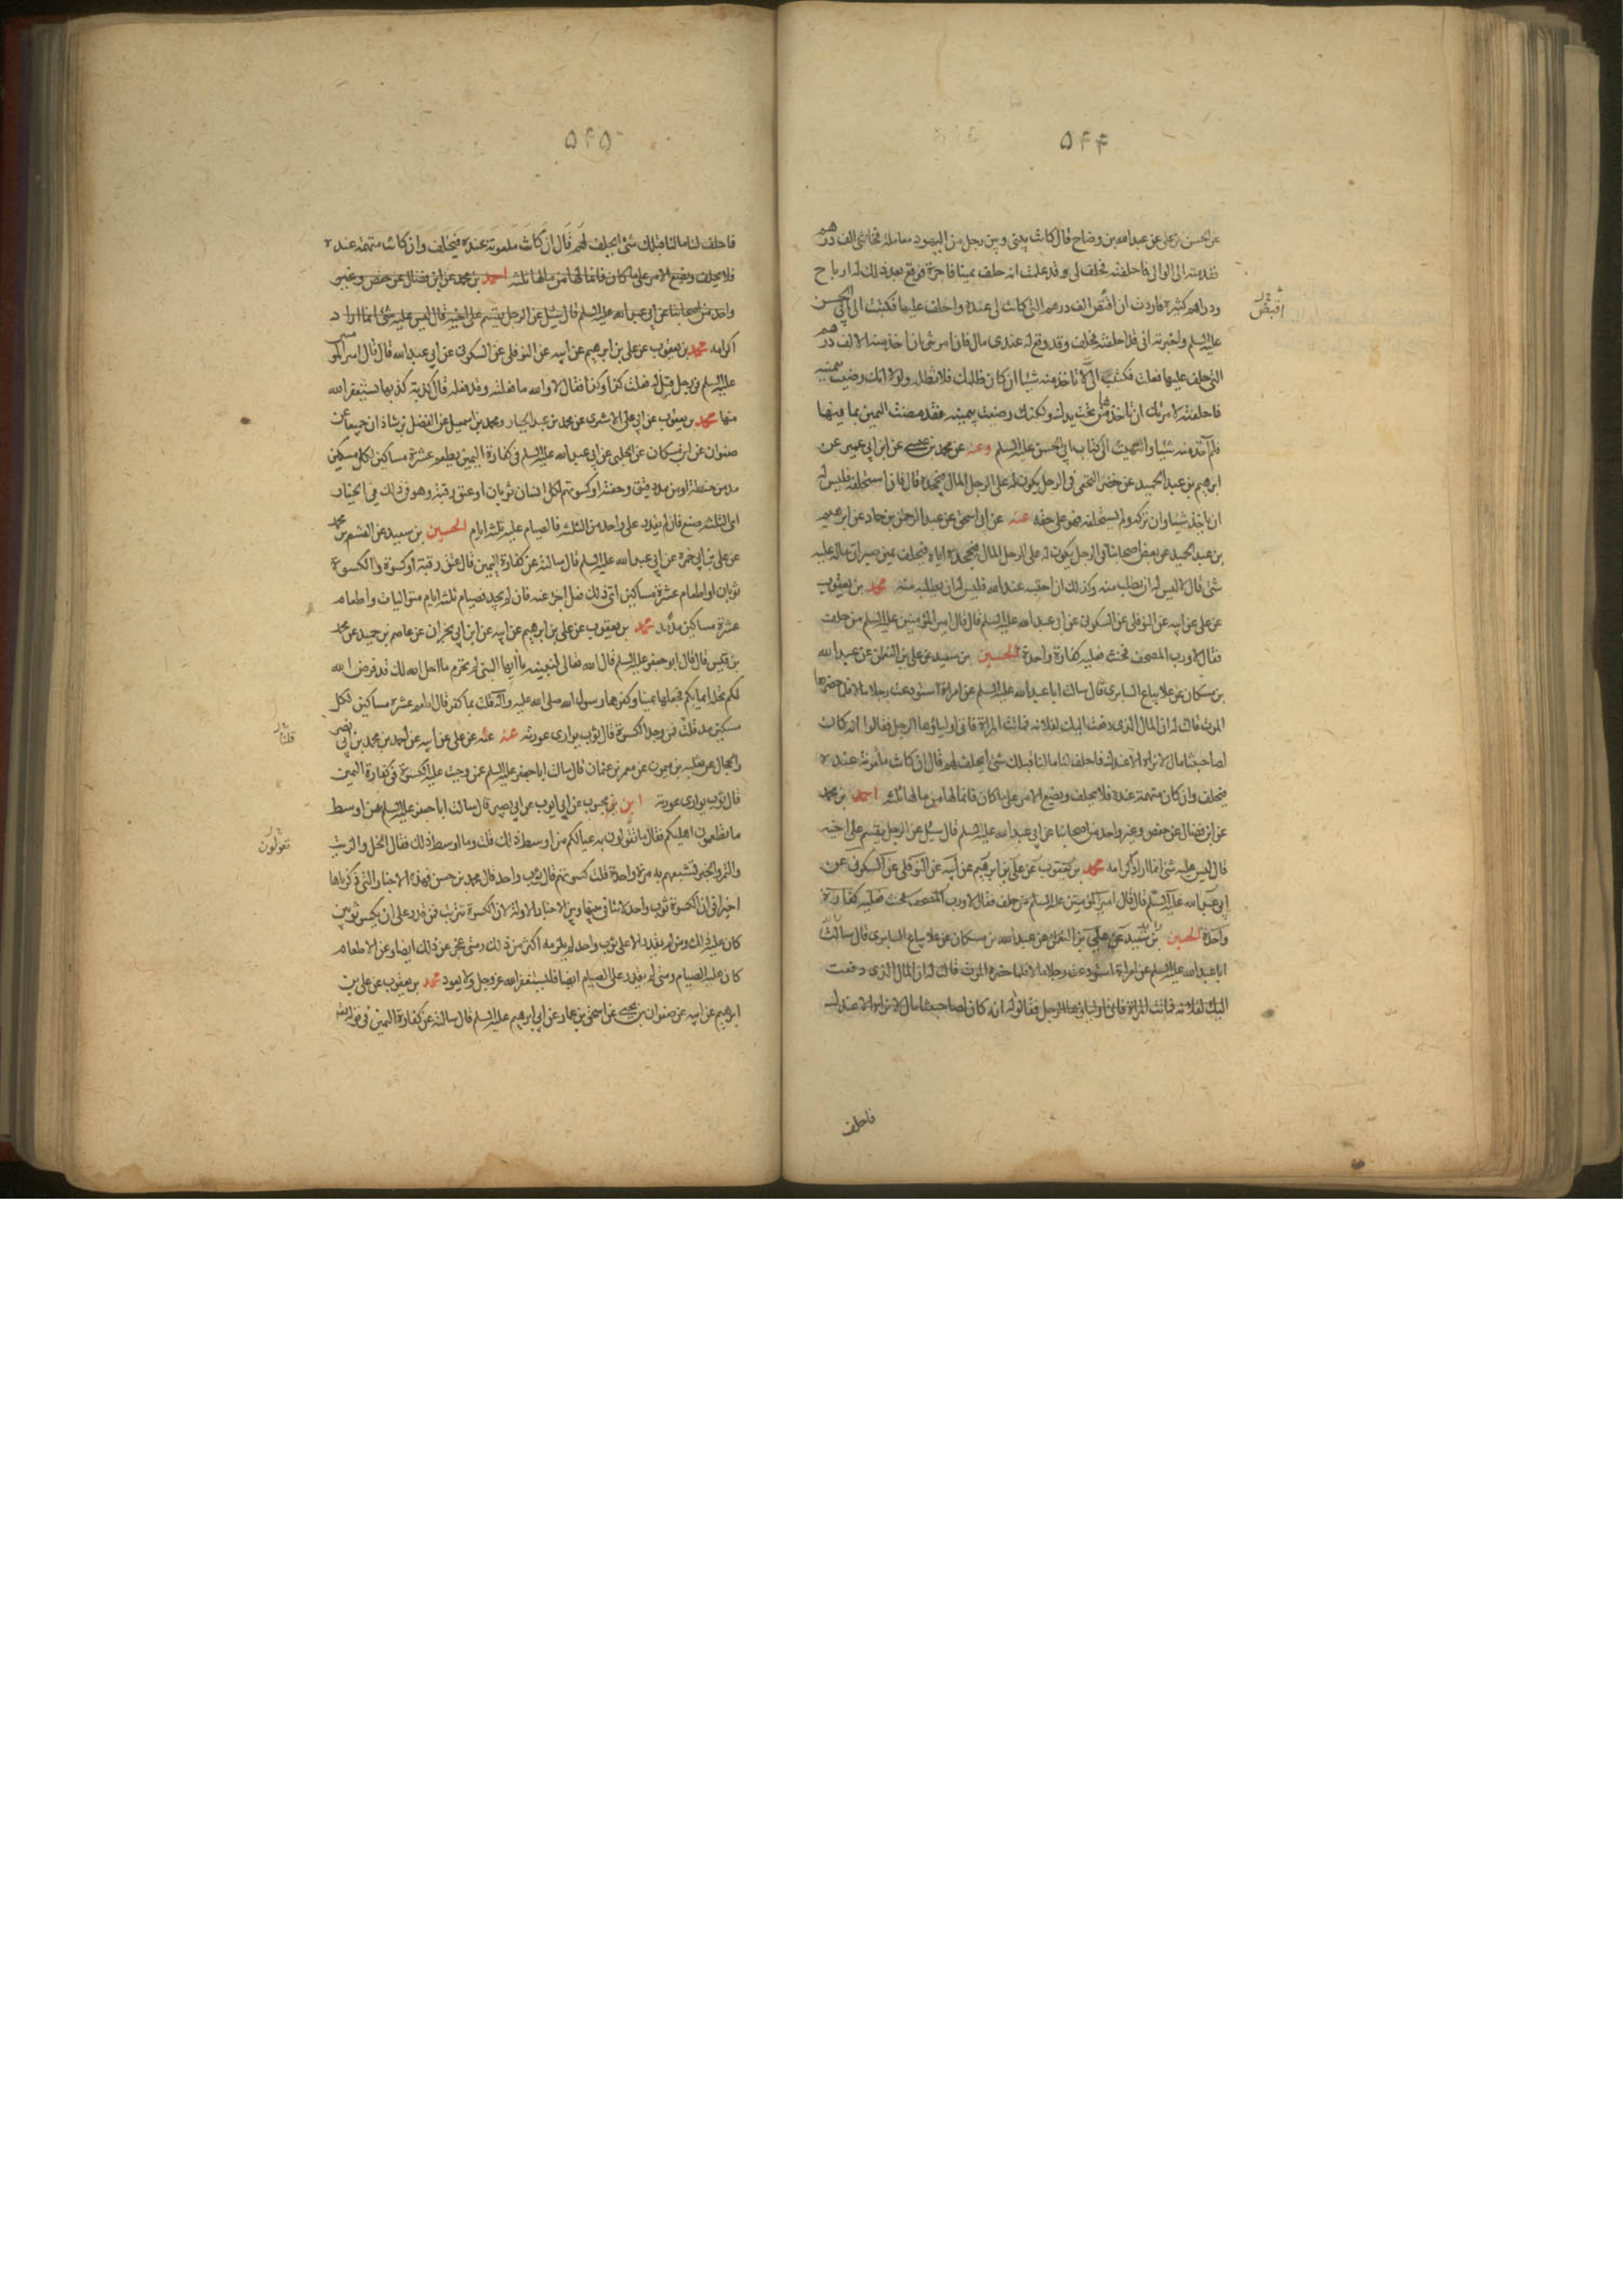 ۵۴۴
عن الحسن بن علي عن عبد الله بن وضاح قال كانت بيني وبين رجل من اليهود معاملة فخانني الف درهم
فقدمته الى الوالي فاحلفته فحلف لي وقد علمت انه حلف يمينا فاجرة فوقع بعد ذلك له ارباح
ودراهم كثيرة فاردت ان اقتص الف درهم التي كانت لي عنده واحلف عليها فكتبت الى ابي الحسن
عليه السلم واخبرته اني قد احلفته فحلف وقد وقع له عندي مال فان امرتني ان اخذ منه الالف درهم
التي حلف عليها فعلت فكتب الي لا تاخذ منه شيئا ان كان ظلمك فلا تظلمه ولولا انك رضيت بيمينه
فاحلفته لامرتك ان تاخذها من تحت يدك ولكنك رضيت بيمينه فقد مضت اليمين بما فيها
فلم آخذ منه شيئا وانتهيت الى كتاب ابي الحسن عليه السلم وعنه عن محمد بن عيسى عن ابن ابي عمير عن
ابرهيم بن عبد الحميد عن خضر النخعي في الرجل يكون له على الرجل المال فيجحده قال فان استحلفه فليس له
ان ياخذ شيئا وان تركه ولم يستحلفه فهو على حقه عنه عن ابي اسحق عن عبد الرحمن بن حماد عن ابرهيم
بن عبد الحميد عن بعض اصحابنا في الرجل يكون له على الرجل المال فيجحده اياه فيحلف يمين صبر ان ماله عليه
شئ قال ليس له ان يطلب منه وكذلك ان احتسبه عند الله فليس له ان يطلبه منه محمد بن يعقوب
عن علي عن ابيه عن النوفلي عن السكوني عن ابي عبد الله عليه السلم قال قال امير المؤمنين عليه السلم من حلف
فقال لا ورب المصحف فحنث فعليه كفارة واحدة الحسين بن سعيد عن علي بن النعمن عن عبد الله
بن مسكان عن علا بياع السابري قال سالت ابا عبد الله عليه السلم عن امراة استودعت رجلا مالا فلما حضرها
الموت قالت له ان المال الذي دفعت اليك لفلانه فماتت المراة فاتى اولياؤها الرجل فقالوا انه كان
لصاحبتنا مال لا نراه الا عندك فاحلف لنا ما لنا قبلك شئ ايحلف لهم قال ان كانت مأمونة عنده
فيحلف وان كان متهمة عنده فلا يحلف ويضع الامر على ما كان فانما لها من مالها ثلثه احمد بن محمد
عن ابن فضال عن حفص وغير واحد من اصحابنا عن ابي عبد الله عليه السلم قال سئل عن الرجل يقسم على اخيه
قال ليس عليه شئ انما اراد اكرامه محمد بن يعقوب عن علي بن ابرهيم عن ابيه عن النوفلي عن السكوني عن
ابي عبد الله عليه السلم قال قال امير المؤمنين عليه السلم من حلف فقال لا ورب المصحف فحنث فعليه كفارة
واحدة الحسين بن سعيد عن علي بن النعمن عن عبد الله بن مسكان عن علا بياع السابري قال سالت
ابا عبد الله عليه السلم عن امراة استودعت رجلا مالا فلما حضره الموت قالت له ان المال الذي دفعت
اليك لفلانه فماتت المراة فاتى اولياؤها الرجل فقالوا له انه كان لصاحبتنا مال لا نراه الا عندك
فاحلف
۵۴۵
فاحلف لنا ما لنا قبلك شئ ايحلف لهم قال ان كانت مامونة عنده فيحلف وان كانت متهمة عنده
فلا يحلف ويضع الامر على ما كان فانما لها من مالها ثلثه احمد بن محمد عن ابن فضال عن حفص وغير
واحد من اصحابنا عن ابي عبد الله عليه السلم قال سئل عن الرجل يقسم على اخيه قال ليس عليه شئ انما اراد
اكرامه محمد بن يعقوب عن علي بن ابرهيم عن ابيه عن النوفلي عن السكوني عن ابي عبد الله قال قال امير المو
عليه السلم في رجل قيل له فعلت كذا وكذا فقال لا والله ما فعلته وقد فعله فقال كذبة كذبها يستغفر الله
منها محمد بن يعقوب عن ابي علي الاشعري عن محمد بن عبد الجبار ومحمد بن اسمعيل عن الفضل بن شاذان جميعا عن
صفوان عن ابن مسكان عن الحلبي عن ابي عبد الله عليه السلم في كفارة اليمين يطعم عشرة مساكين لكل مسكين
مد من حنطة او مد من دقيق وحفنة او كسوتهم لكل انسان ثوبان او عتق رقبة وهو في ذلك في الخيار
اي الثلثه صنع فان لم يقدر على واحد من الثلثه فالصيام عليه ثلثه ايام الحسين بن سعيد عن القسم بن محمد
عن علي بن ابي حمزة عن ابي عبد الله عليه السلم قال سالته عن كفارة اليمين قال عتق رقبة او كسوة والكسوة
ثوبان او اطعام عشرة مساكين اي ذلك فعل اجزء عنه فان لم يجد فصيام ثلثه ايام متواليات واطعام
عشرة مساكين مد مد محمد بن يعقوب عن علي بن ابرهيم عن ابيه عن ابن ابي نجران عن عاصم بن حميد عن محمد
بن قيس قال قال ابو جعفر عليه السلم قال الله تعالى لنبيه يا ايها النبي لم تحرم ما احل الله لك قد فرض الله
لكم تحلة ايمانكم فجعلها يمينا وكفرها رسول الله صلى الله عليه وآله قلت بما كفر قال اطعم عشرة مساكين لكل
مسكين مد قلت فمن وجد الكسوة قال ثوب يواري عورته عنه عن علي عن ابيه عن احمد بن محمد بن ابي نصر
والحجال عن ثعلبه بن ميمون عن معمر بن عثمان قال سالت ابا جعفر عليه السلم عن وجب عليه الكسوة في كفارة اليمين
قال ثوب يواري عورته ابن محبوب عن ابي ايوب عن ابي بصير قال سالت ابا جعفر عليه السلم عن اوسط
ما تطعمون اهليكم فقال ما تقولون به عيالكم من اوسط ذلك قلت وما اوسط ذلك فقال الخل والزيت
والتمر والخبز تشبعهم به مرة واحدة قلت كسوتهم قال ثوب واحد قال محمد بن حسن فهذه الاخبار التي ذكرناها
اخيرا في ان الكسوة ثوب واحد لا تنافي بينها وبين الاخبار الاولة لان الكسوة تترتب فمن قدر على ان يكسو ثوبين
كان عليه ذلك ومن لم يقدر الا على ثوب واحد لم يلزمه اكثر من ذلك ومتى عجز عن ذلك ايضا وعن الاطعام
كان عليه الصيام ومتى لم يقدر على الصيام ايضا فليستغفر الله عز وجل ولا يعود محمد بن يعقوب عن علي بن
ابرهيم عن ابيه عن صفوان بن يحيى عن اسحق بن عمار عن ابي ابرهيم عليه السلم قال سالته عن كفارة اليمين في قوله
تقولون